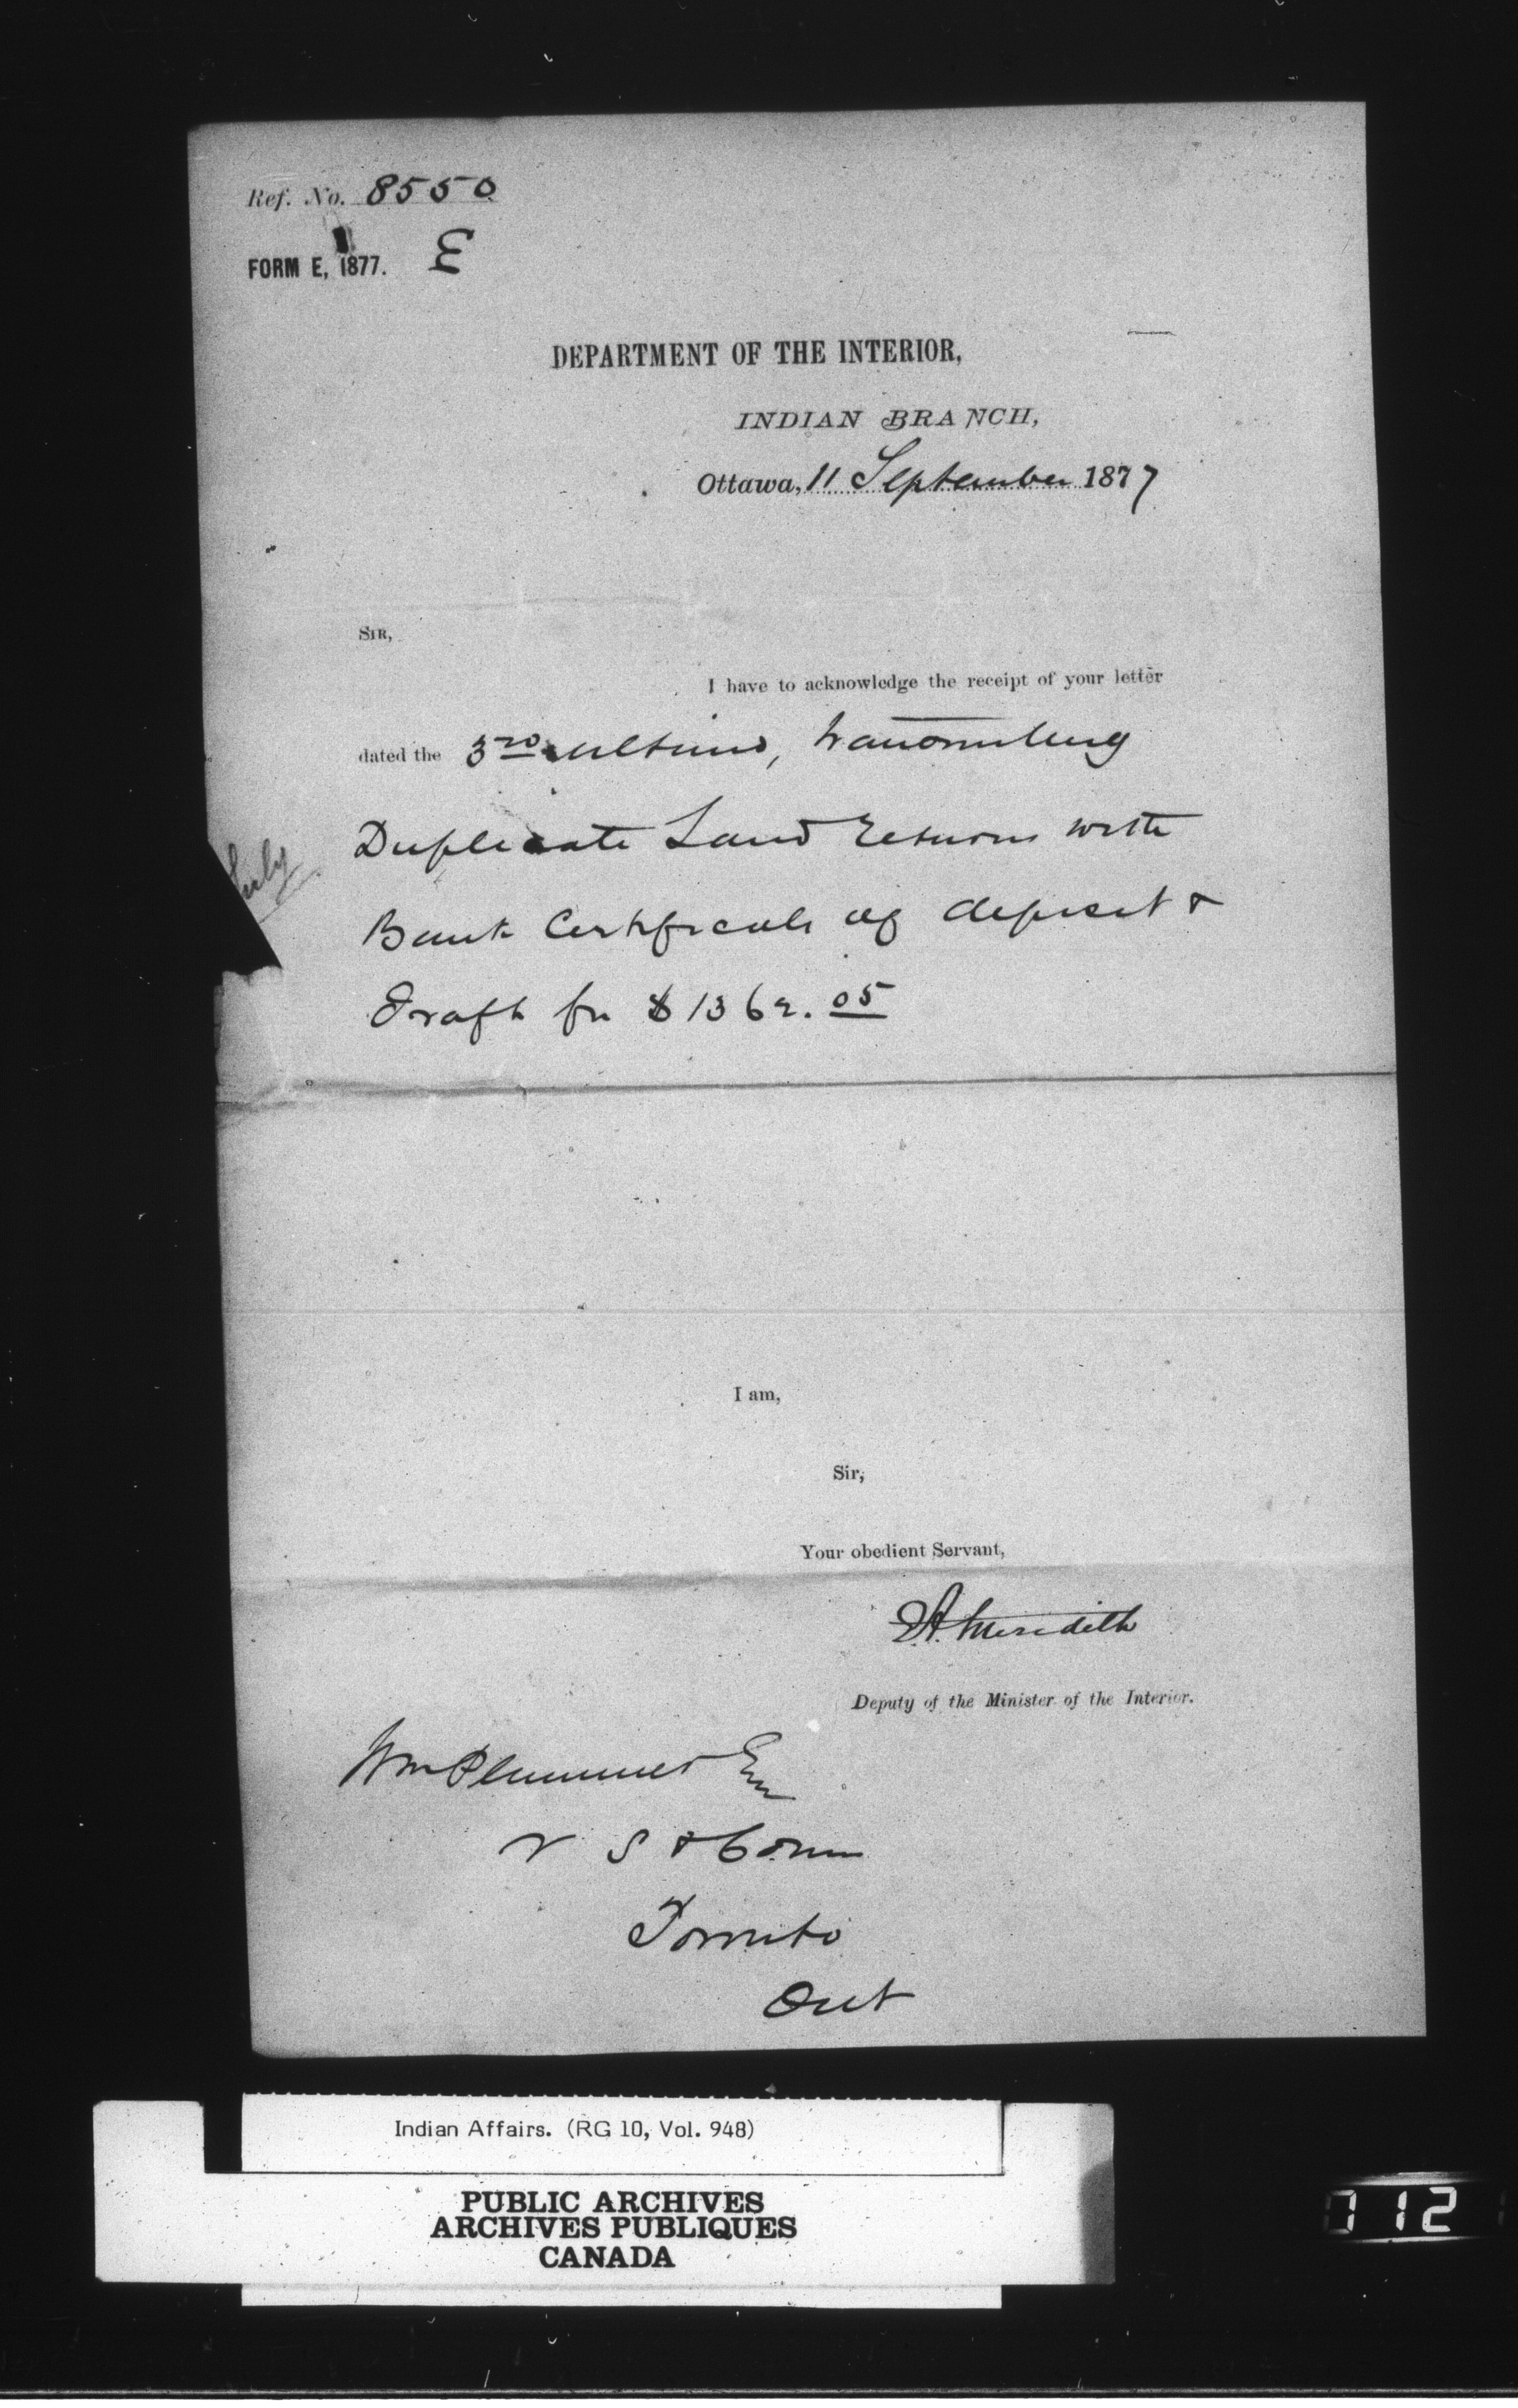 Ref. No. 8550
FORM E, 1877. E
DEPARTMENT OF THE INTERIOR,
INDIAN BRANCH,
Ottawa, 11 September 1877
SIR,
I have to acknowledge the receipt of your letter
dated the 3rd ultimo, transmitting
Duplicate Land Returns with
July
Bank Certificate of deposit &
Draft for $1362.05
I am,
Sir,
Your obedient Servant,
E.A. Meredith
Deputy of the Minister of the Interior.
Wm Plummer Esq
V S & Comm
Toronto
Ont
Indian Affairs. (RG 10, Vol. 948)
PUBLIC ARCHIVES
ARCHIVES PUBLIQUES
CANADA
112